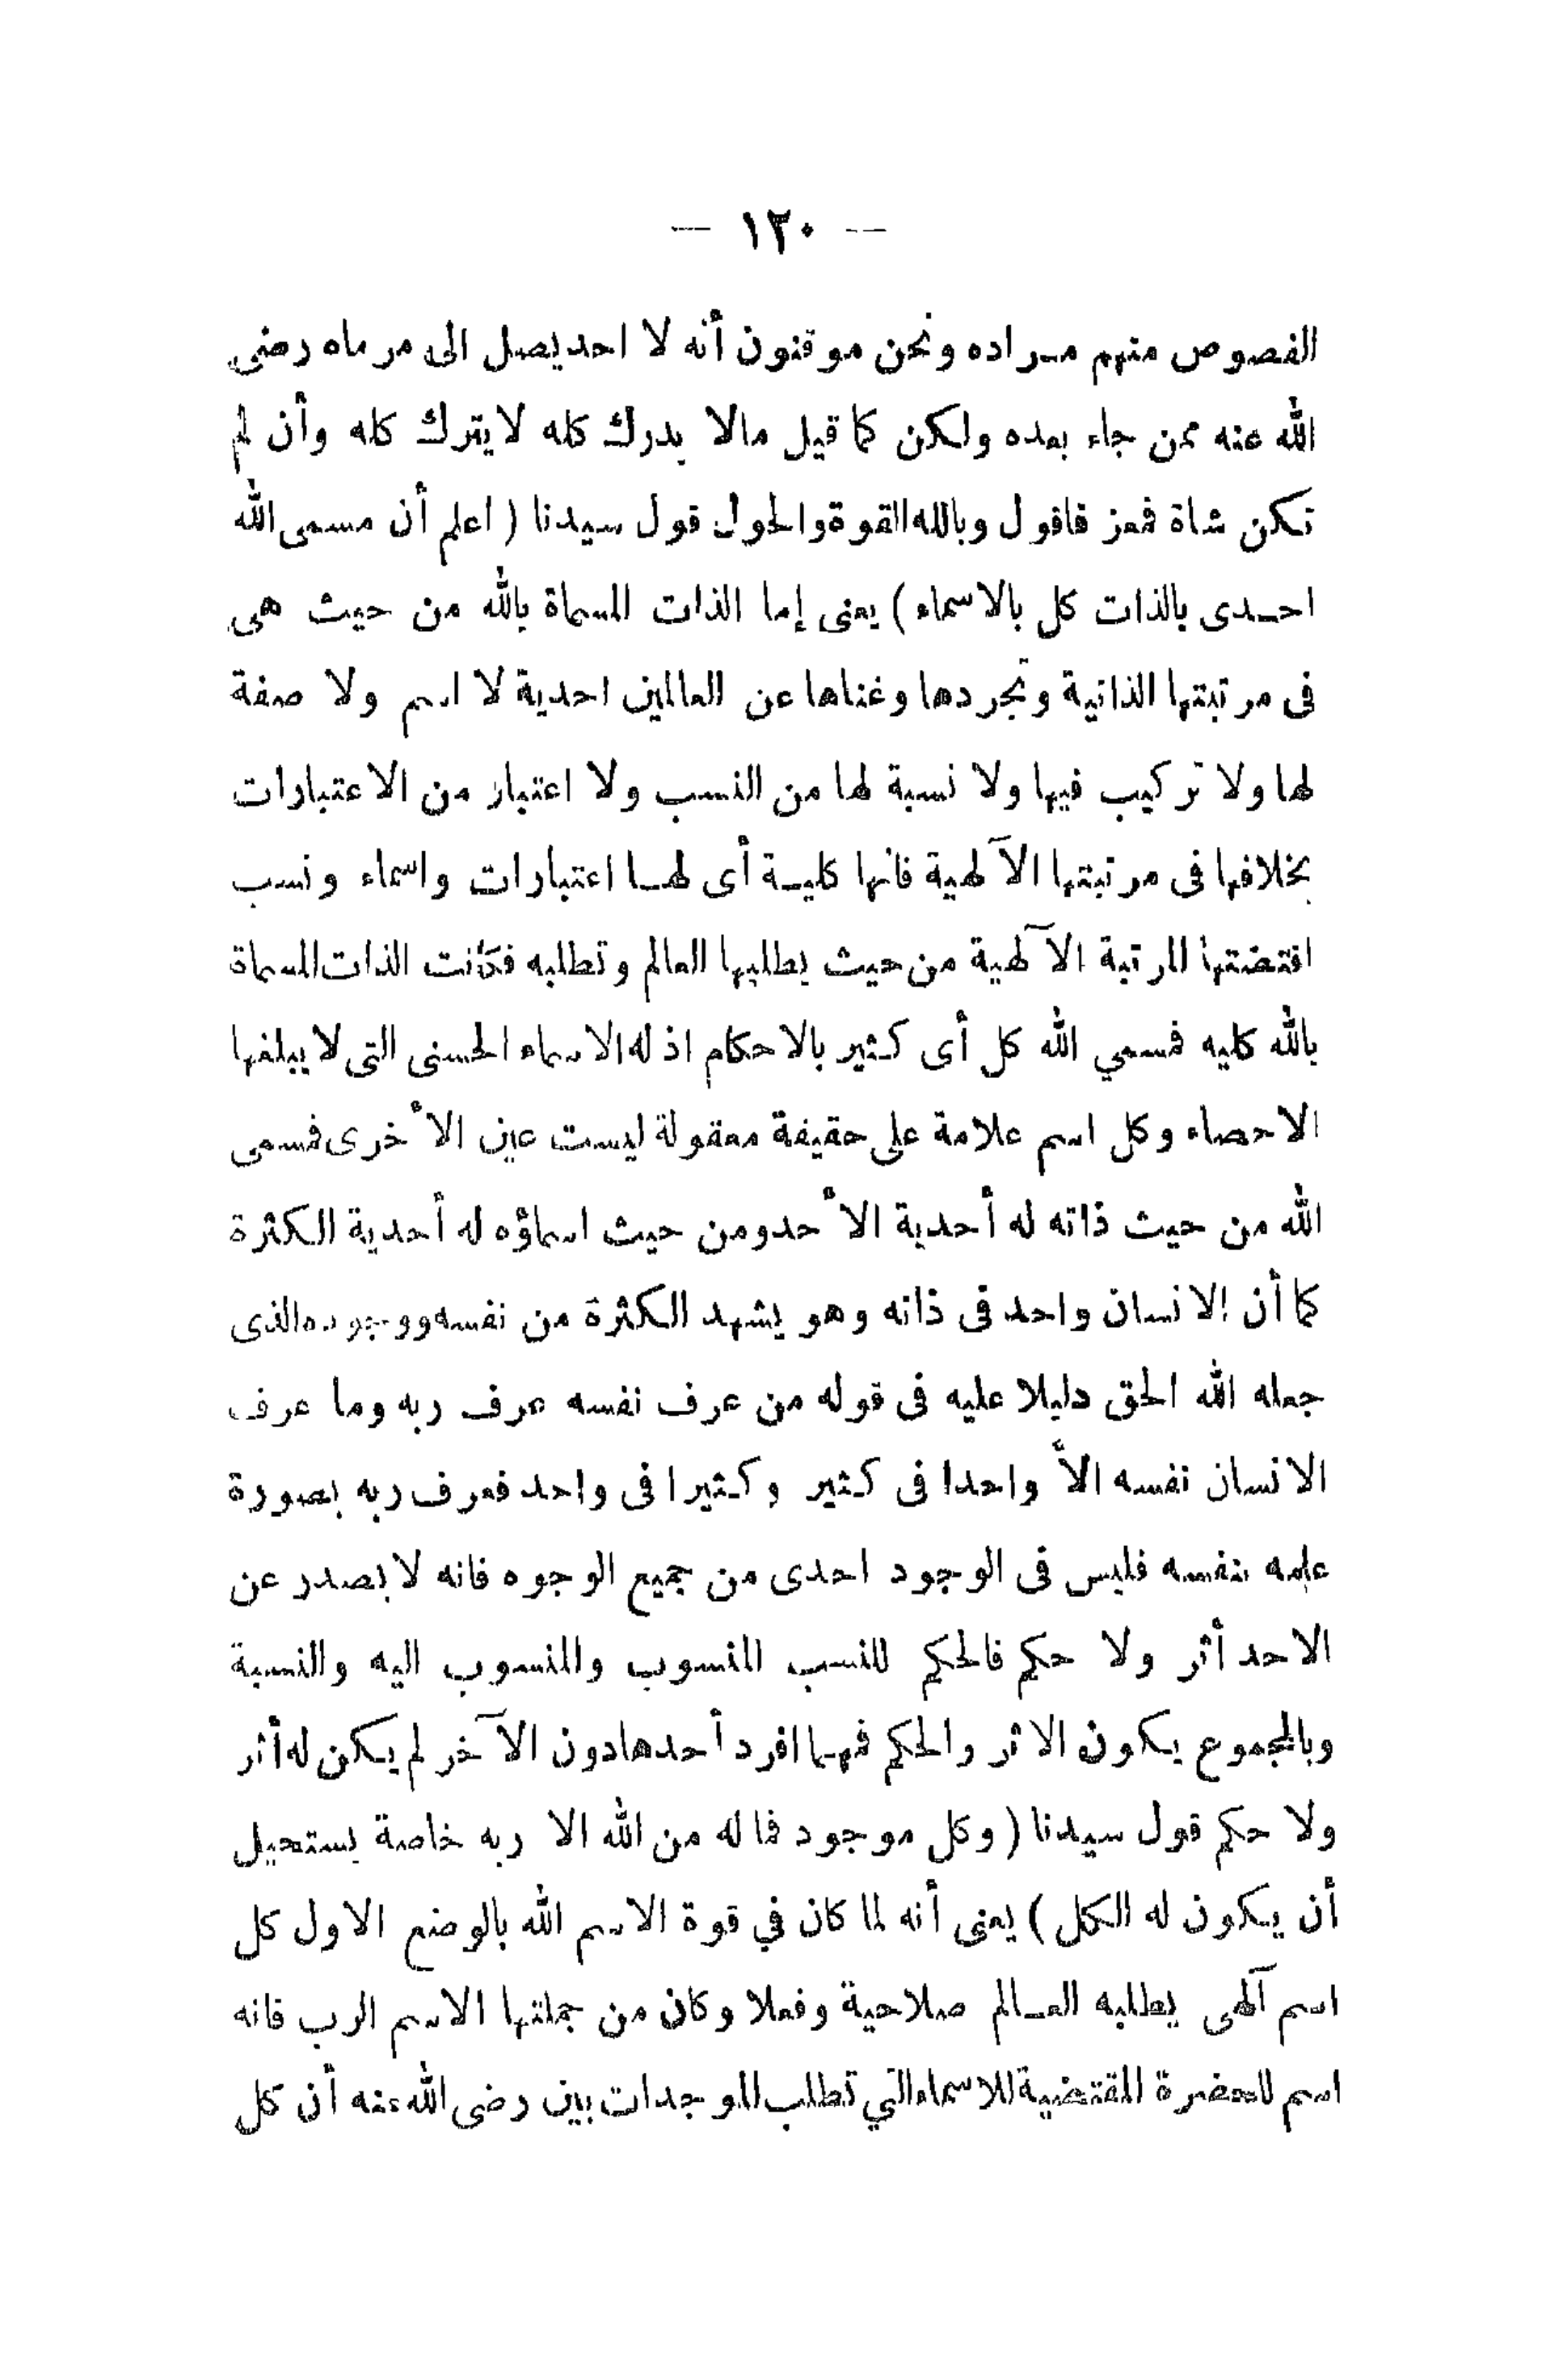 — ١٣٠ —
الفصوص منهم مراده ونحن موقنون أنه لا احد يصل الى مرماه رضى
الله عنه ممن جاء بعده ولكن كما قيل مالا يدرك كله لا يترك كله وأن لم
تكن شاة فمعز فاقول وبالله القوة والحول قول سيدنا ( اعلم أن مسمى الله
احدى بالذات كل بالاسماء ) يعنى إما الذات المسماة بالله من حيث هى
فى مرتبتها الذاتية وتجردها وغناها عن العالمين احدية لا اسم ولا صفة
لها ولا تركيب فيها ولا نسبة لها من النسب ولا اعتبار من الاعتبارات
بخلافها فى مرتبتها الآلهية فانها كلية أى لها اعتبارات واسماء ونسب
اقتضتها المرتبة الآلهية من حيث يطلبها العالم وتطلبه فكانت الذات المسماة
بالله كليه فمسمي الله كل أى كثير بالاحكام اذ له الاسماء الحسنى التى لا يبلغها
الاحصاء وكل اسم علامة على حقيقة معقولة ليست عين الأخرى فمسمى
الله من حيث ذاته له أحدية الأحد ومن حيث اسماؤه له أحدية الكثرة
كما أن الانسان واحد فى ذاته وهو يشهد الكثرة من نفسه ووجوده الذى
جعله الله الحق دليلا عليه فى قوله من عرف نفسه عرف ربه وما عرف
الانسان نفسه الاّ واحدا فى كثير وكثيرا فى واحد فعرف ربه بصورة
علمه بنفسه فليس فى الوجود احدى من جميع الوجوه فانه لا يصدر عن
الاحد أثر ولا حكم فالحكم للنسب المنسوب والمنسوب اليه والنسبة
وبالمجموع يكون الاثر والحكم فمهما افرد أحدها دون الآخر لم يكن له أثر
ولا حكم قول سيدنا ( وكل موجود فما له من الله الا ربه خاصة يستحيل
أن يكون له الكل ) يعنى أنه لما كان في قوة الاسم الله بالوضع الاول كل
اسم آلهى يطلبه العالم صلاحية وفعلا وكان من جملتها الاسم الرب فانه
اسم للحضرة المقتضية للاسماء التي تطلب الموجدات بين رضى الله عنه أن كل